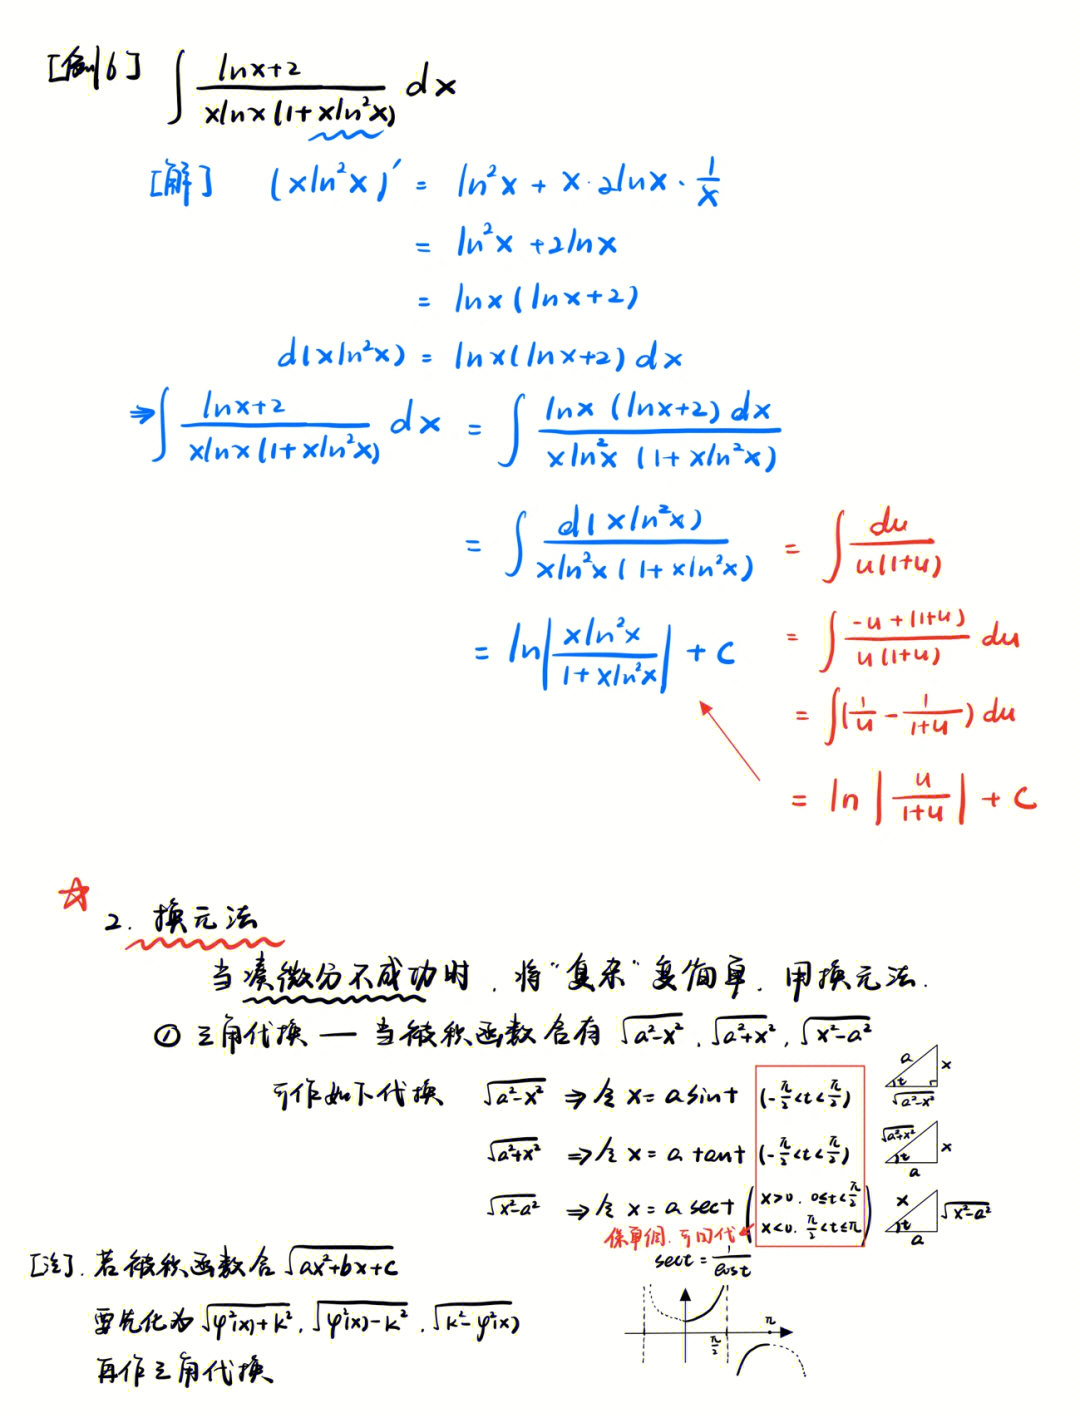 [例16] ∫ (lnx+2)/(xlnx(1+xln²x)) dx
[解] (xln²x)′ = ln²x + x·2lnx·1/x
= ln²x +2lnx
= lnx(lnx+2)
d(xln²x) = lnx(lnx+2) dx
⇒ ∫ (lnx+2)/(xlnx(1+xln²x)) dx = ∫ (lnx(lnx+2)dx)/(xln²x(1+xln²x))
= ∫ d(xln²x)/(xln²x(1+xln²x)) = ∫ du/(u(1+u))
= ln|xln²x/(1+xln²x)| + C = ∫ (-u+(1+u))/(u(1+u)) du
= ∫(1/u - 1/(1+u)) du
= ln|u/(1+u)| + C
☆
2. 换元法
当凑微分不成功时,将"复杂"变简单,用换元法.
① 三角代换 — 当被积函数含有 √(a²-x²), √(a²+x²), √(x²-a²)
可作如下代换 √(a²-x²) ⇒ 令 x = a sint (-π/2<t<π/2) a x t √(a²-x²)
√(a²+x²) ⇒ 令 x = a tant (-π/2<t<π/2) √(a²+x²) x t a
√(x²-a²) ⇒ 令 x = a sect (x>0, 0≤t<π/2 x<0, π/2<t≤π) x √(x²-a²) t a
保单侧,可回代
sect = 1/cost
[注]. 若被积函数含 √(ax²+bx+c)
要先化为 √(φ²(x)+k²), √(φ²(x)-k²), √(k²-φ²(x))
再作三角代换
π/2 π